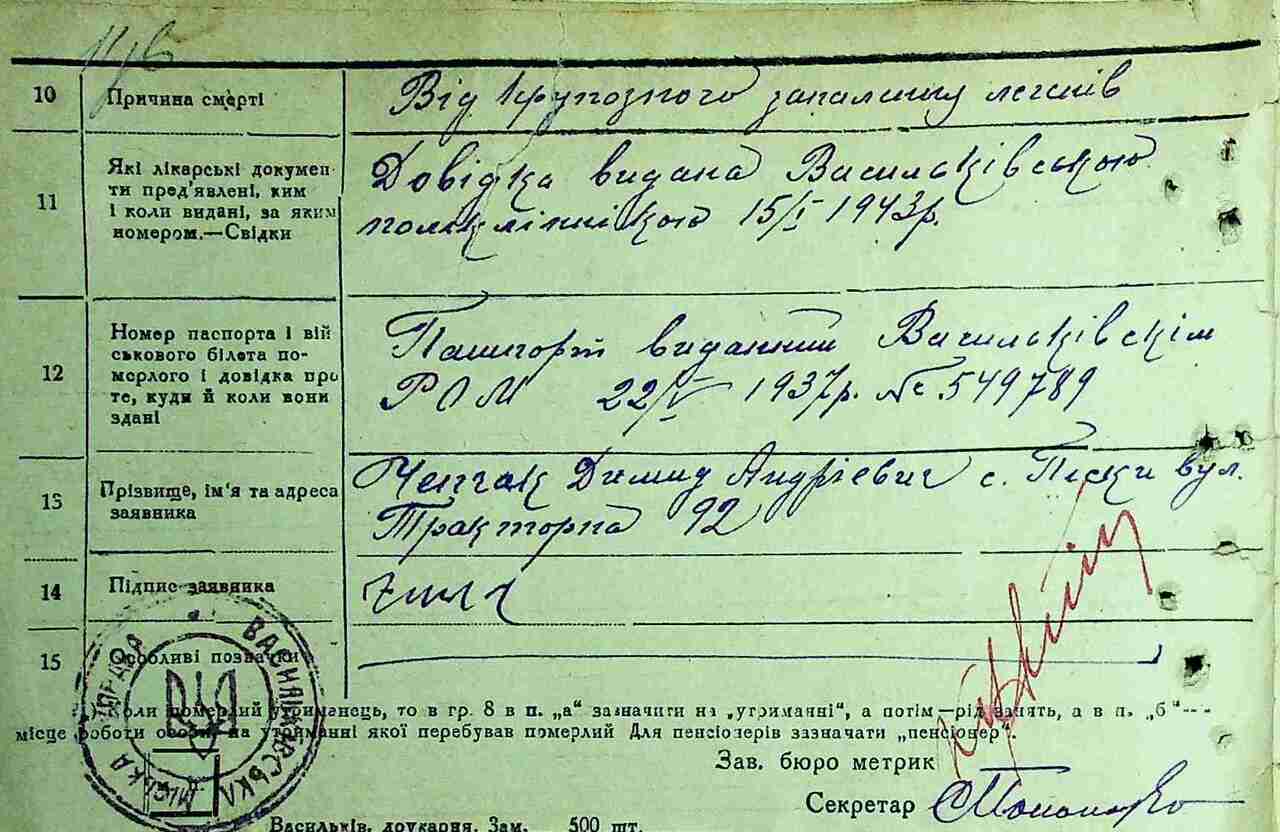 10 Причина смерті Від крупозного запалення легенів
11 Які лікарські докумен-
ти пред'явлені, ким
і коли видані, за яким
номером.—Свідки
Довідка видана Васильківською
поликлінікою 15/I 1943р.
12 Номер паспорта і вій
ськового білета по-
мерлого і довідка про
те, куди й коли вони
здані
Пашпорт виданний Васильківскім
РОМ 22/V 1937р. № 549789
13 Прізвище, ім'я та адреса
заявника
Димид Андрієвич с. Піски вул.
Тракторна 92
14 Підпис заявника
15 Особливі позначки
ВАСИЛЬКІВСЬКА МІСЬКА УПРАВА
Коли померлий утриманець, то в гр. 8 в п. „а" зазначити на „утриманні", а потім—рід занять, а в п. „б"—
місце роботи особи, на утриманні якої перебував померлий Для пенсіонерів зазначати „пенсіонер".
Зав. бюро метрик
Секретар
Васильків, друкарня. Зам. 500 шт.